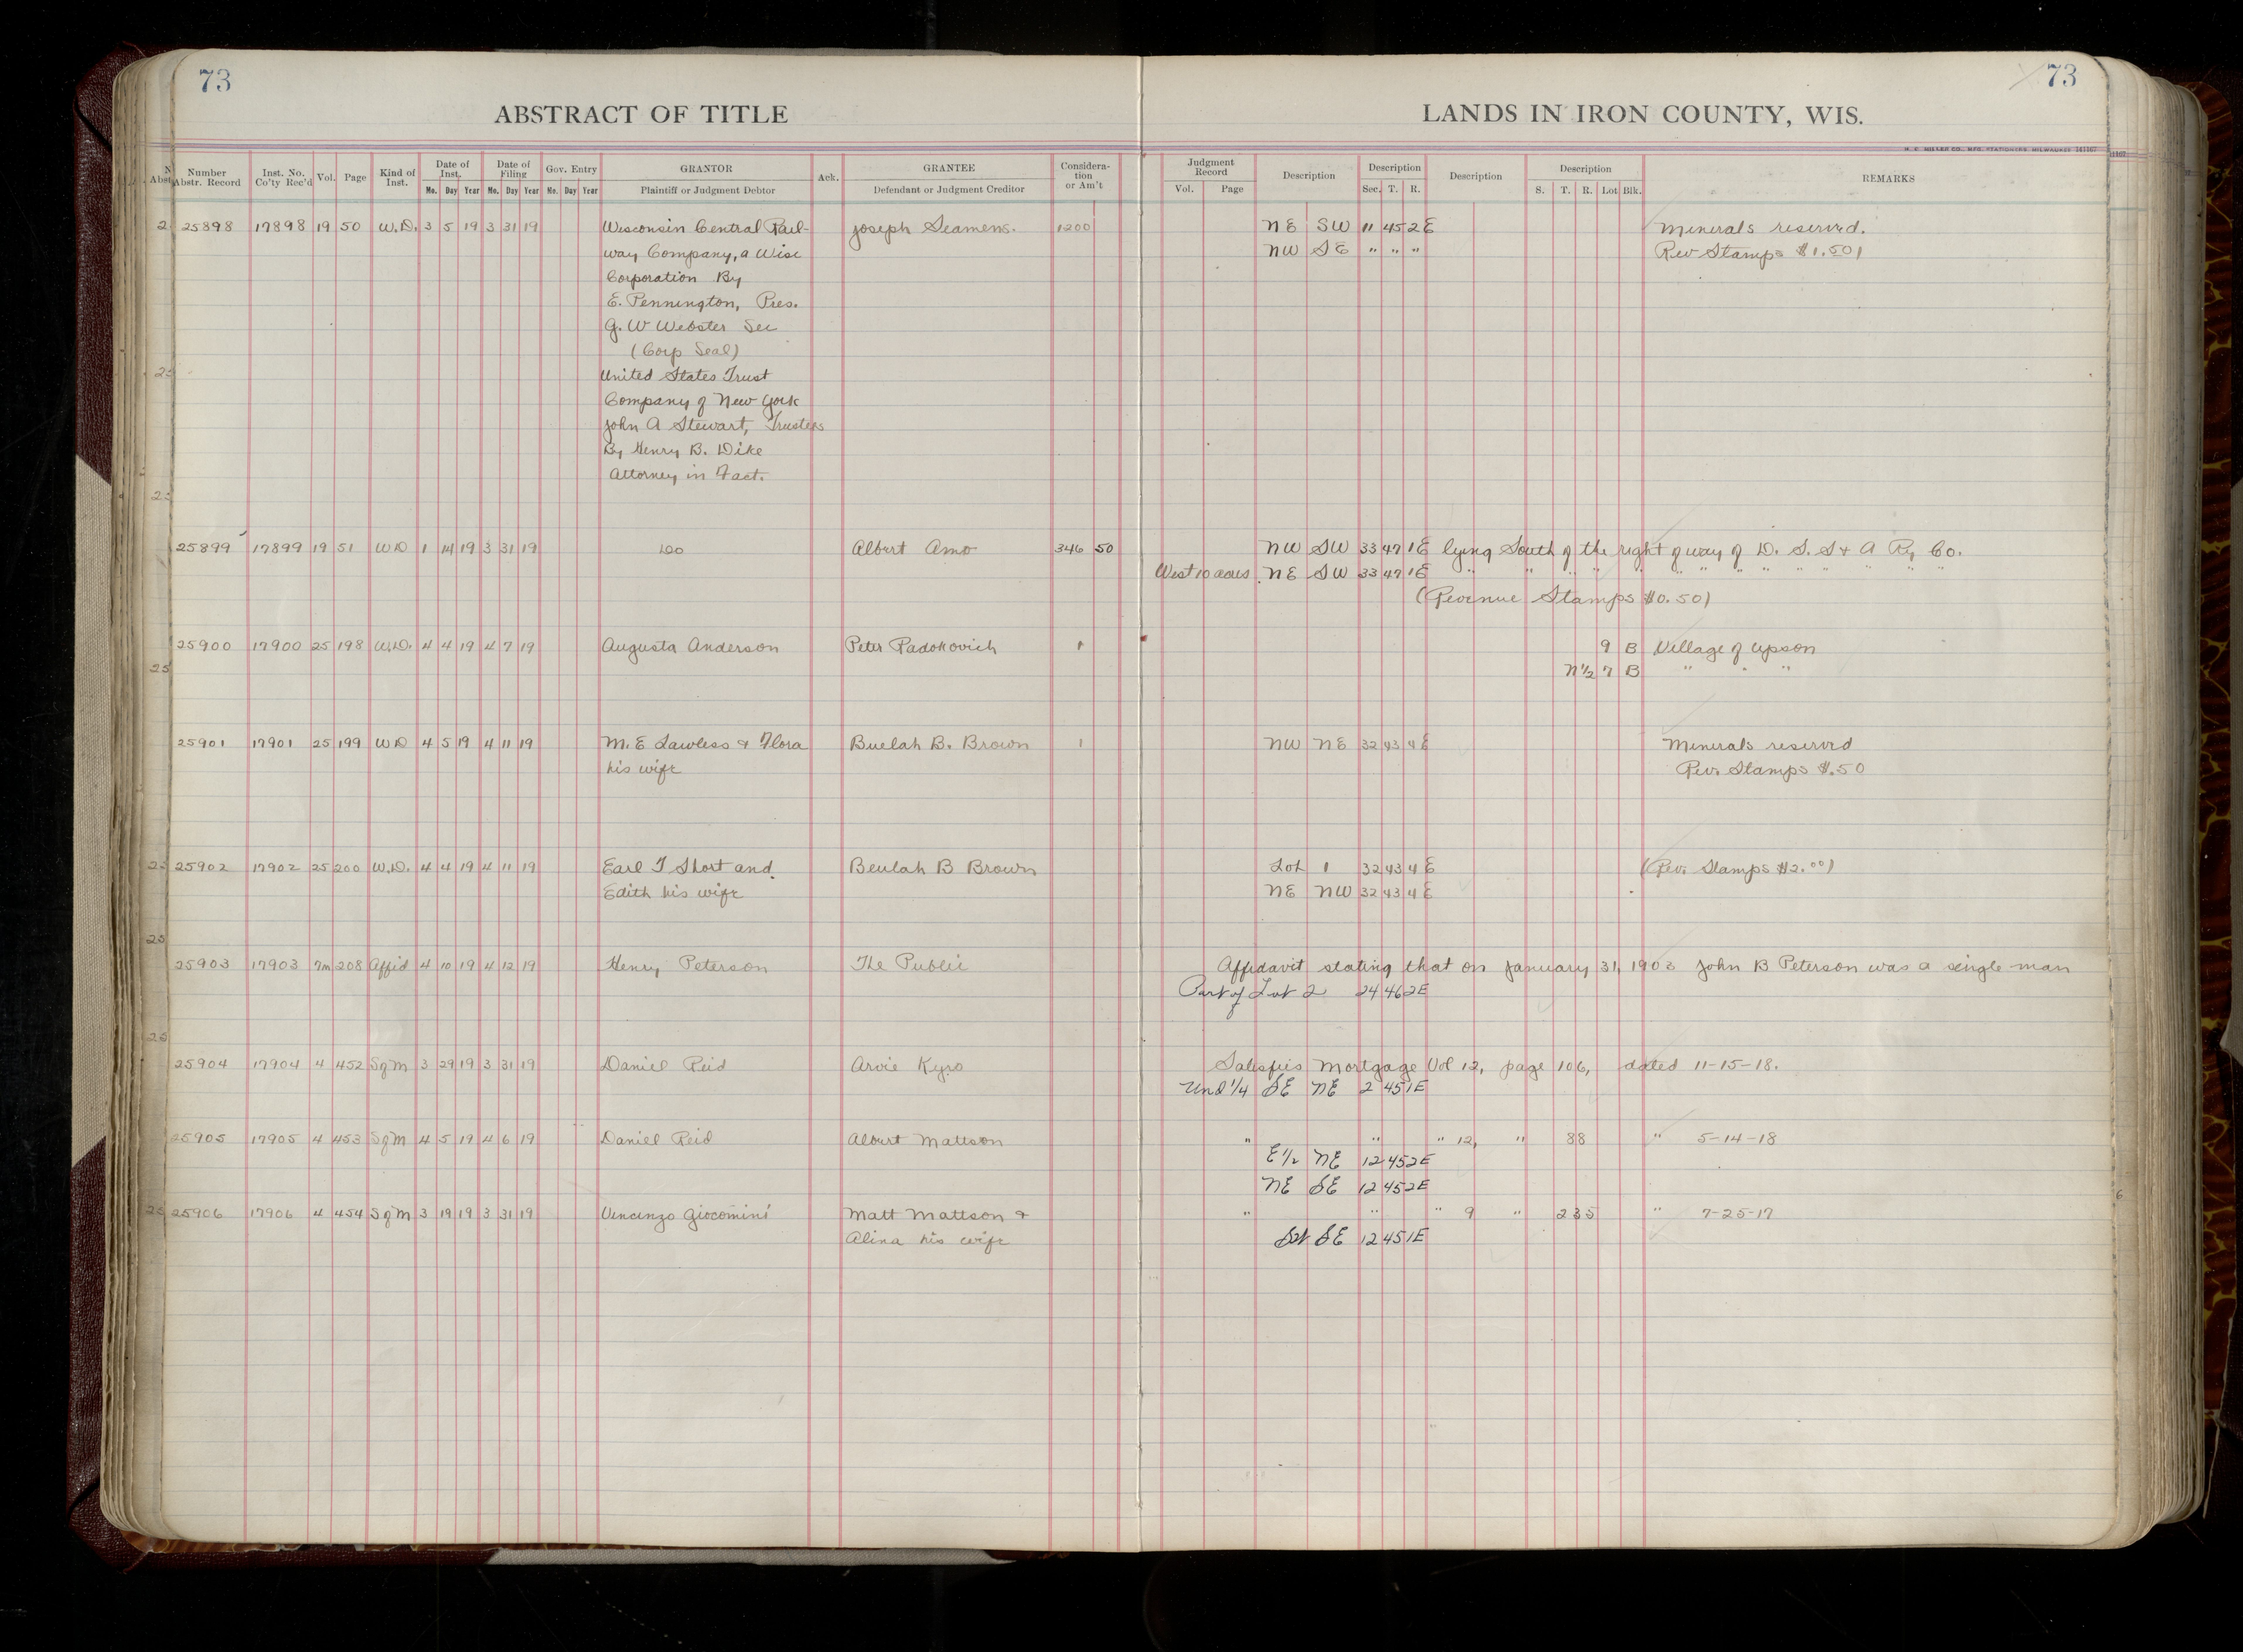 73
73
ABSTRACT OF TITLE
LANDS IN IRON COUNTY, WIS.
H. C. MILLER CO., MFG. STATIONERS, MILWAUKEE 141167
Number Abstr. Record | Inst. No. Co'ty Rec'd | Vol. | Page | Kind of Inst. | Date of Inst. Mo. Day Year | Date of Filing Mo. Day Year | Gov. Entry Mo. Day Year | GRANTOR Plaintiff or Judgment Debtor | Ack. | GRANTEE Defendant or Judgment Creditor | Consideration or Am't | Judgment Record Vol. Page | Description | Description Sec. T. R. | Description | Description S. T. R. Lot Blk. | REMARKS
25898 17898 19 50 W.D. 3 5 19 3 31 19 Wisconsin Central Rail- Joseph Seamens. 1200 NE SW 11 45 2E Minerals reserved.
way Company, a Wisc NW SE " " " Rev Stamps $1.50)
Corporation By
E. Pennington, Pres.
G. W Webster Sec
(Corp Seal)
United States Trust
Company of New York
John A Stewart, Trustees
By Henry B. Dike
Attorney in Fact.
25899 17899 19 51 WD 1 14 19 3 31 19 Do Albert Amo 346 50 NW SW 33 47 1E lying South of the right of way of D. S. S & A Ry Co.
West 10 acres NE SW 33 47 1E " " " " " " " " " " " " "
(Revenue Stamps $0.50)
25900 17900 25 198 W.D. 4 4 19 4 7 19 Augusta Anderson Peter Radokovich 1 9 B Village of Upson
N½ 7 B " " "
25901 17901 25 199 WD 4 5 19 4 11 19 M. E Lawless & Flora Buelah B. Brown 1 NW NE 32 43 4E Minerals reserved
his wife Rev. Stamps $.50
25902 17902 25 200 W.D. 4 4 19 4 11 19 Earl T Short and Beulah B Brown Lot 1 32 43 4E (Rev. Stamps $2.00)
Edith his wife NE NW 32 43 4E
25903 17903 7m 208 Affid 4 10 19 4 12 19 Henry Peterson The Public Affidavit stating that on January 31, 1903 John B Peterson was a single man
Part of Lot 2 24 46 2E
25904 17904 4 452 SgM 3 29 19 3 31 19 Daniel Reid Arvie Kyro Satisfies Mortgage Vol 12, page 106, dated 11-15-18.
Und ¼ SE NE 2 45 1E
25905 17905 4 453 SgM 4 5 19 4 6 19 Daniel Reid Albert Mattson " " " 12, " 88 " 5-14-18
E½ NE 12 45 2E
NE SE 12 45 2E
25906 17906 4 454 SgM 3 19 19 3 31 19 Vincenzo Giocomini Matt Mattson & " " " 9 " 235 " 7-25-17
Alina his wife SW SE 12 45 1E